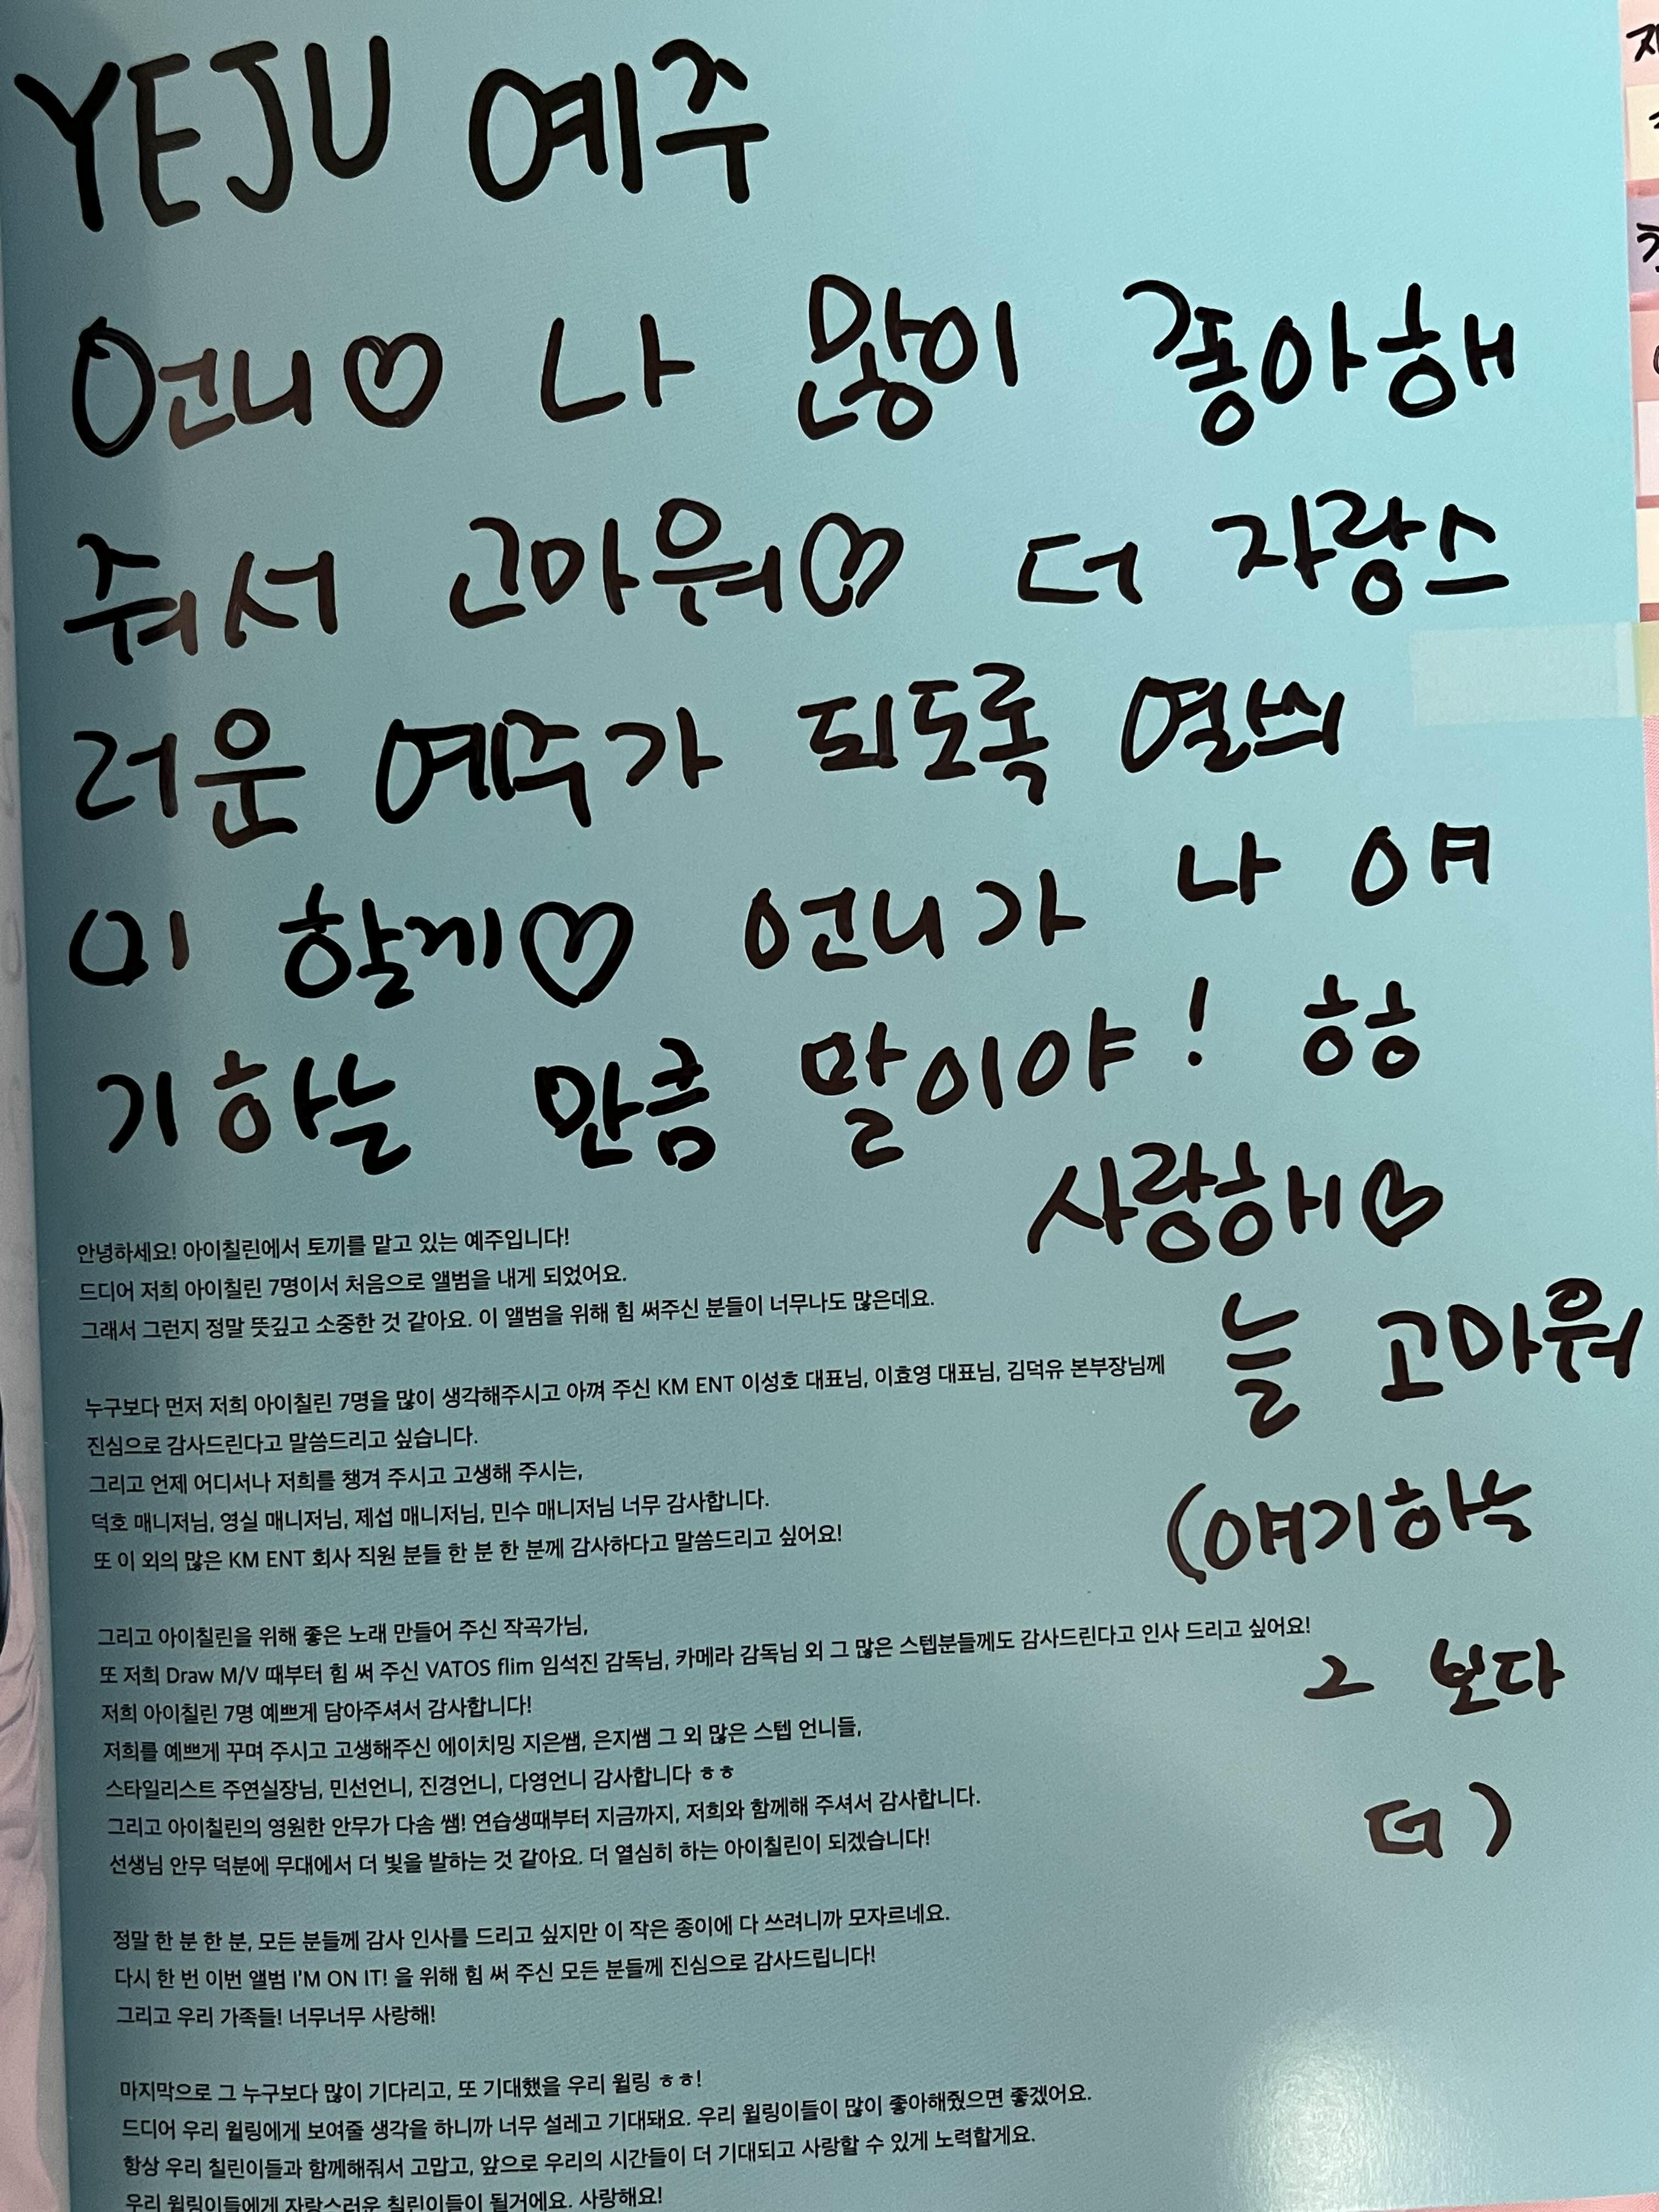 YEJU 예주
언니♡ 나 많이 좋아해
줘서 고마워♡ 더 자랑스
러운 예주가 되도록 열씌
미 할게♡ 언니가 나 얘
기하는 만큼 말이야! ㅎㅎ
사랑해♡
늘 고마워
(얘기하는
그 보다
더)
안녕하세요! 아이칠린에서 토끼를 맡고 있는 예주입니다!
드디어 저희 아이칠린 7명이서 처음으로 앨범을 내게 되었어요.
그래서 그런지 정말 뜻깊고 소중한 것 같아요. 이 앨범을 위해 힘 써주신 분들이 너무나도 많은데요.
누구보다 먼저 저희 아이칠린 7명을 많이 생각해주시고 아껴 주신 KM ENT 이성호 대표님, 이효영 대표님, 김덕유 본부장님께
진심으로 감사드린다고 말씀드리고 싶습니다.
그리고 언제 어디서나 저희를 챙겨 주시고 고생해 주시는,
덕호 매니저님, 영실 매니저님, 제섭 매니저님, 민수 매니저님 너무 감사합니다.
또 이 외의 많은 KM ENT 회사 직원 분들 한 분 한 분께 감사하다고 말씀드리고 싶어요!
그리고 아이칠린을 위해 좋은 노래 만들어 주신 작곡가님,
또 저희 Draw M/V 때부터 힘 써 주신 VATOS flim 임석진 감독님, 카메라 감독님 외 그 많은 스텝분들께도 감사드린다고 인사 드리고 싶어요!
저희 아이칠린 7명 예쁘게 담아주셔서 감사합니다!
저희를 예쁘게 꾸며 주시고 고생해주신 에이치밍 지은쌤, 은지쌤 그 외 많은 스텝 언니들,
스타일리스트 주연실장님, 민선언니, 진경언니, 다영언니 감사합니다 ㅎㅎ
그리고 아이칠린의 영원한 안무가 다솜 쌤! 연습생때부터 지금까지, 저희와 함께해 주셔서 감사합니다.
선생님 안무 덕분에 무대에서 더 빛을 발하는 것 같아요. 더 열심히 하는 아이칠린이 되겠습니다!
정말 한 분 한 분, 모든 분들께 감사 인사를 드리고 싶지만 이 작은 종이에 다 쓰려니까 모자르네요.
다시 한 번 이번 앨범 I'M ON IT! 을 위해 힘 써 주신 모든 분들께 진심으로 감사드립니다!
그리고 우리 가족들! 너무너무 사랑해!
마지막으로 그 누구보다 많이 기다리고, 또 기대했을 우리 윌링 ㅎㅎ!
드디어 우리 윌링에게 보여줄 생각을 하니까 너무 설레고 기대돼요. 우리 윌링이들이 많이 좋아해줬으면 좋겠어요.
항상 우리 칠린이들과 함께해줘서 고맙고, 앞으로 우리의 시간들이 더 기대되고 사랑할 수 있게 노력할게요.
우리 윌링이들에게 자랑스러운 칠린이들이 될거에요. 사랑해요!